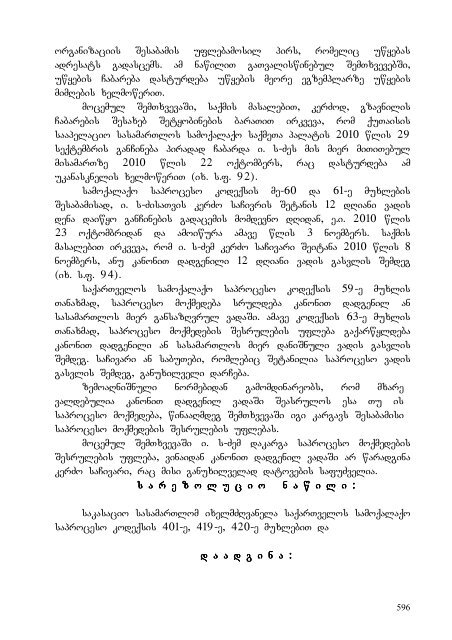 ორგანიზაციის შესაბამის უფლებამოსილ პირს, რომელიც უწყებას
ადრესატს გადასცემს. ამ ნაწილით გათვალისწინებულ შემთხვევებში,
უწყების ჩაბარება დასტურდება უწყების მეორე ეგზემპლარზე უწყების
მიმღების ხელმოწერით.
მოცემულ შემთხვევაში, საქმის მასალებით, კერძოდ, გზავნილის
ჩაბარების შესახებ შეტყობინების ბარათით ირკვევა, რომ ქუთაისის
სააპელაციო სასამართლოს სამოქალაქო საქმეთა პალატის 2010 წლის 29
სექტემბრის განჩინება პირადად ჩაბარდა ი. ს-ძეს მის მიერ მითითებულ
მისამართზე 2010 წლის 22 ოქტომბერს, რაც დასტურდება ამ
უკანასკნელის ხელმოწერით (იხ. ს.ფ. 92).
სამოქალაქო საპროცესო კოდექსის მე-60 და 61-ე მუხლების
შესაბამისად, ი. ს-ძისათვის კერძო საჩივრის შეტანის 12 დღიანი ვადის
დენა დაიწყო განჩინების გადაცემის მომდევნო დღიდან, ე.ი. 2010 წლის
23 ოქტომბრიდან და ამოიწურა ამავე წლის 3 ნოემბერს. საქმის
მასალებით ირკვევა, რომ ი. ს-ძემ კერძო საჩივარი შეიტანა 2010 წლის 8
ნოემბერს, ანუ კანონით დადგენილი 12 დღიანი ვადის გასვლის შემდეგ
(იხ. ს.ფ. 94).
საქართველოს სამოქალაქო საპროცესო კოდექსის 59-ე მუხლის
თანახმად, საპროცესო მოქმედება სრულდება კანონით დადგენილ ან
სასამართლოს მიერ განსაზღვრულ ვადაში. ამავე კოდექსის 63-ე მუხლის
თანახმად, საპროცესო მოქმედების შესრულების უფლება გაქარწყლდება
კანონით დადგენილი ან სასამართლოს მიერ დანიშნული ვადის გასვლის
შემდეგ. საჩივარი ან საბუთები, რომლებიც შეტანილია საპროცესო ვადის
გასვლის შემდეგ, განუხილველი დარჩება.
ზემოაღნიშნული ნორმებიდან გამომდინარეობს, რომ მხარე
ვალდებულია კანონით დადგენილ ვადაში შეასრულოს ესა თუ ის
საპროცესო მოქმედება, წინააღმდეგ შემთხვევაში იგი კარგავს შესაბამისი
საპროცესო მოქმედების შესრულების უფლებას.
მოცემულ შემთხვევაში ი. ს-ძემ დაკარგა საპროცესო მოქმედების
შესრულების უფლება, ვინაიდან კანონით დადგენილ ვადაში არ წარადგინა
კერძო საჩივარი, რაც მისი განუხილველად დატოვების საფუძველია.
ს ა რ ე ზ ო ლ უ ც ი ო ნ ა წ ი ლ ი :
საკასაციო სასამართლომ იხელმძღვანელა საქართველოს სამოქალაქო
საპროცესო კოდექსის 401-ე, 419-ე, 420-ე მუხლებით და
დ ა ა დ გ ი ნ ა :
596